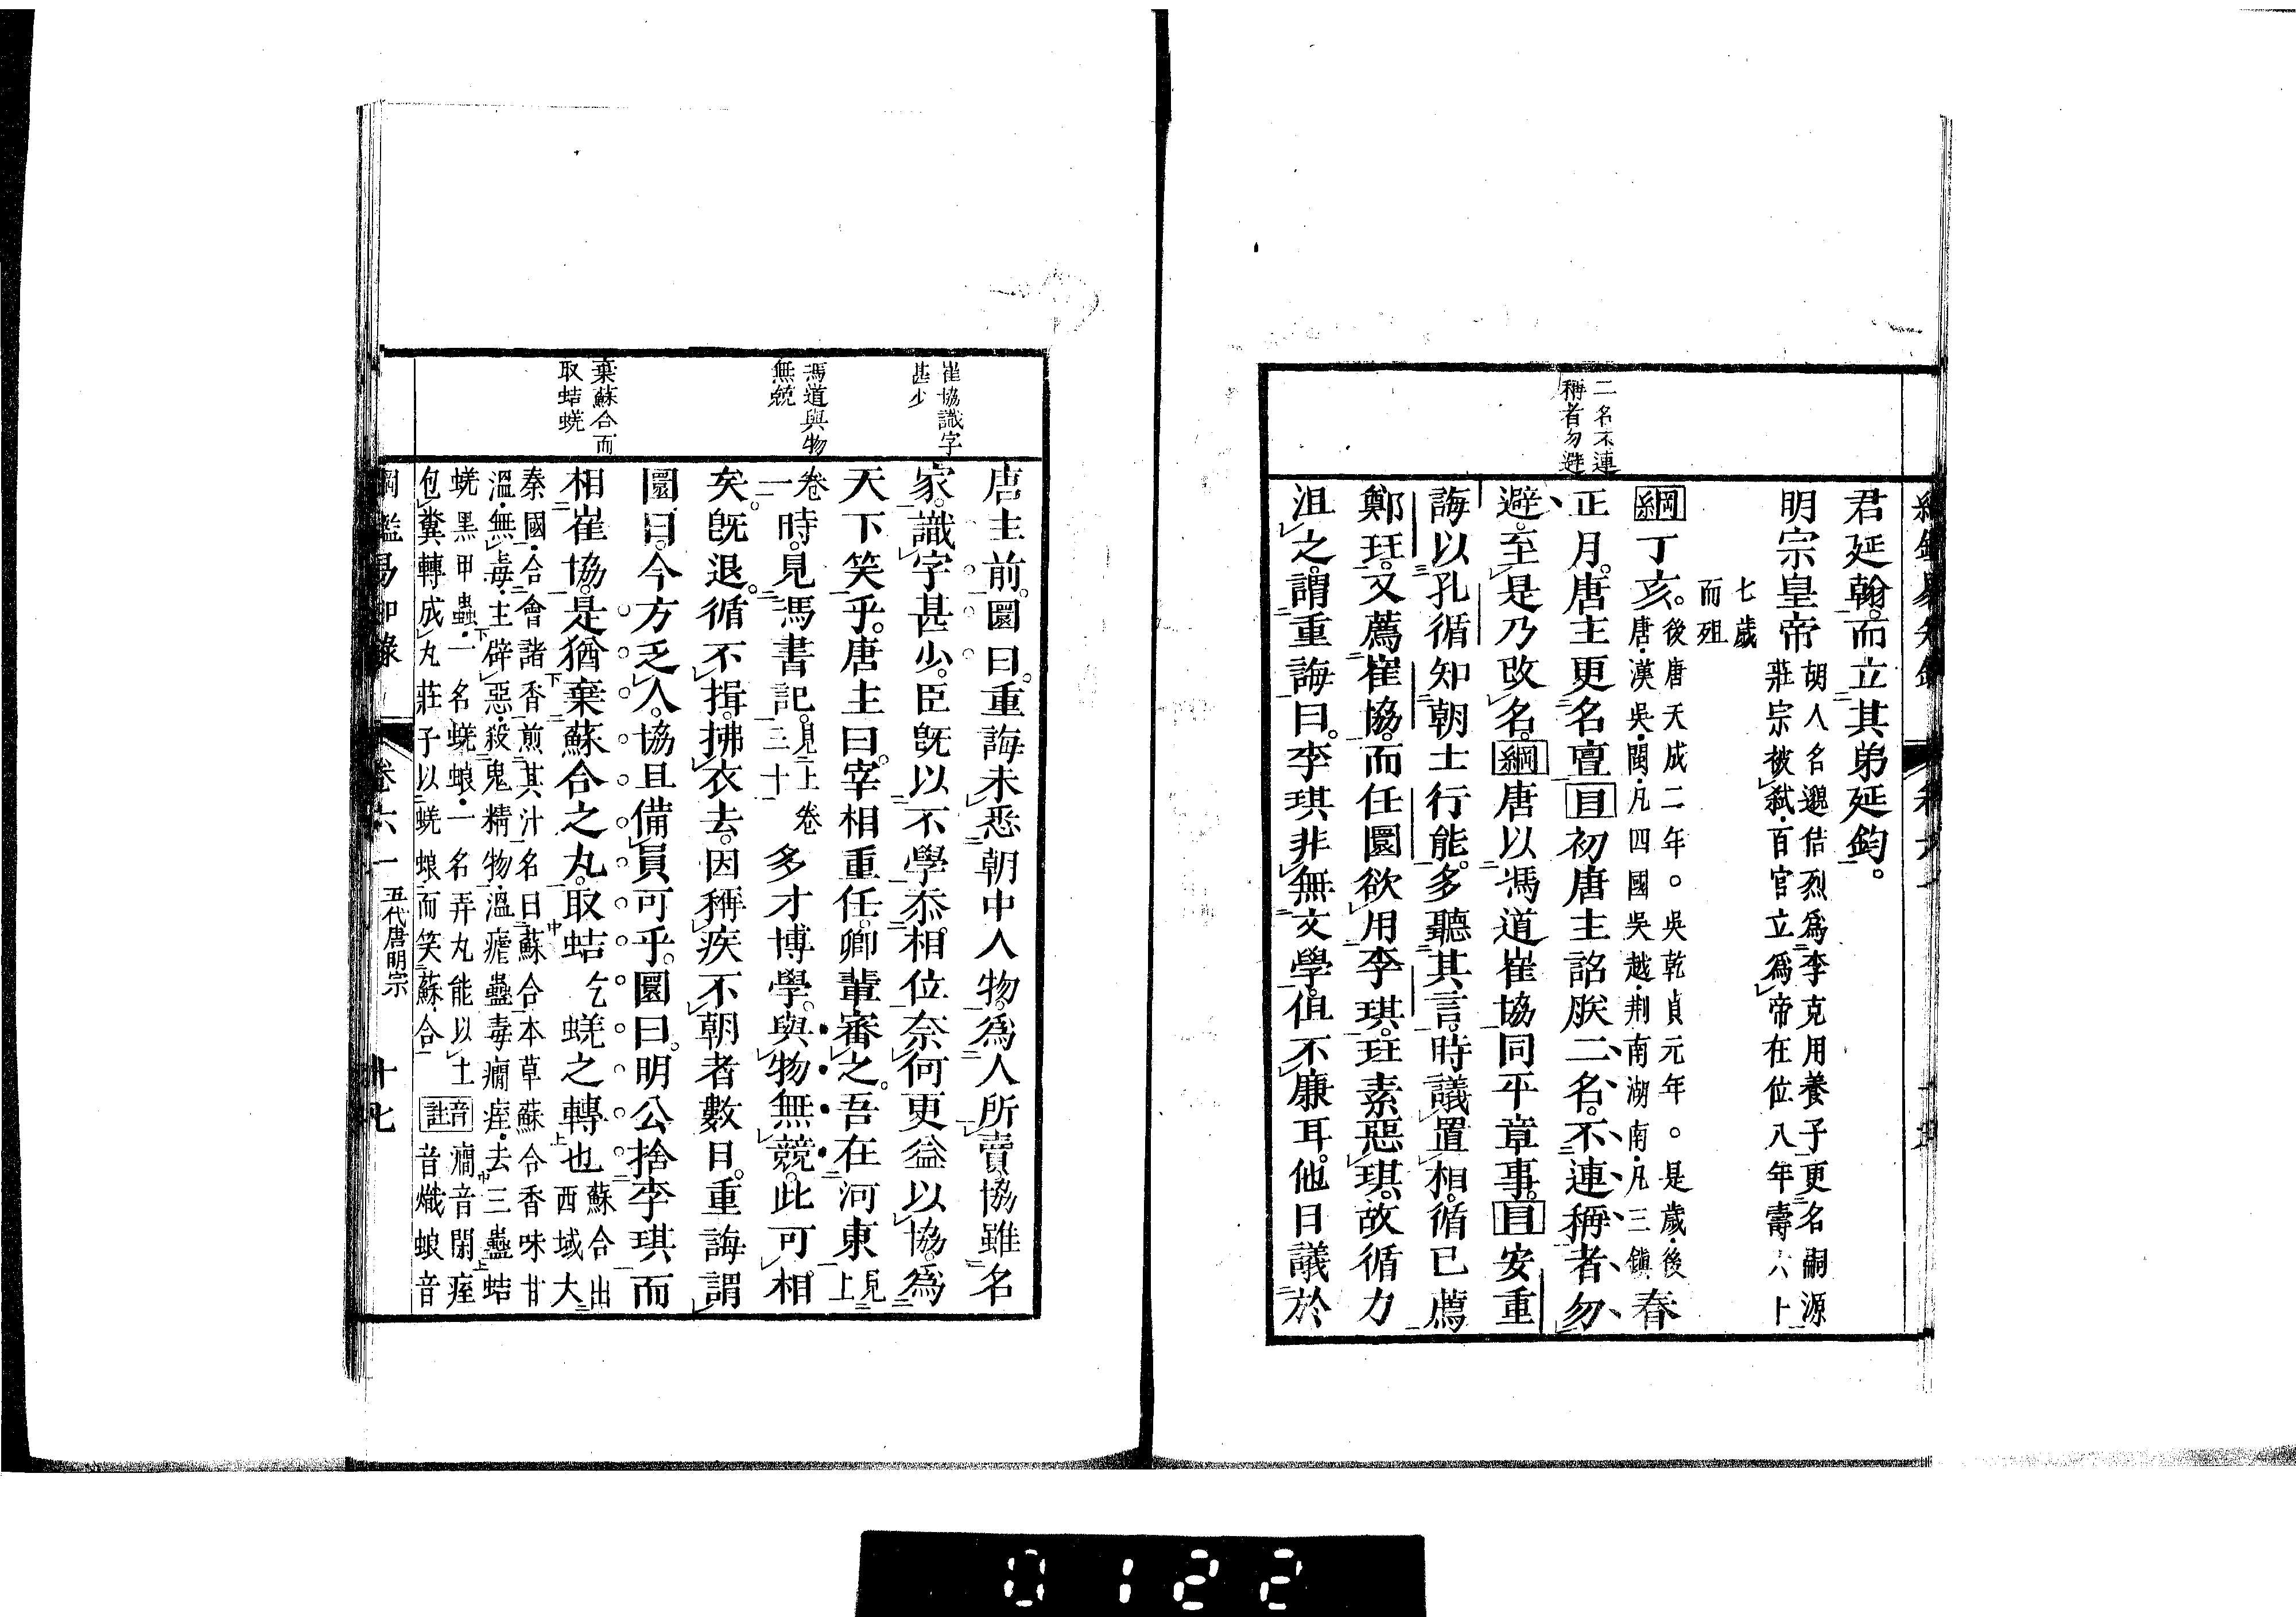 君延翰。而立其弟延鈞。
明宗皇帝胡人名邈佶烈爲李克用養子更名嗣源
莊宗被弑百官立爲帝在位八年壽六十
七歲
而殂
綱丁亥。後唐天成二年。吳乾貞元年。是歲後
唐漢吳閩凡四國吳越荆南湖南凡三鎭春
正月。唐主更名亶目初唐主詔朕二名。不連稱者勿
二名不連
稱者勿避
避。至是乃改名。綱唐以馮道崔協同平章事。目安重
誨以孔循知朝士行能。多聽其言。時議置相。循已薦
鄭珏。又薦崔協。而任圜欲用李琪。珏素惡琪。故循力
沮之。謂重誨曰。李琪非無文學。但不廉耳。他日議於
唐主前。圜曰。重誨未悉朝中人物。爲人所賣。協雖名
崔協識字
甚少
家。識字甚少。臣旣以不學忝相位。奈何更益以協。爲
天下笑乎。唐主曰。宰相重任。卿輩審之。吾在河東見上
馮道與物
無競
卷一時。見馮書記。見上卷三十一多才博學。與物無競。此可相
矣。旣退。循不揖。拂衣去。因稱疾不朝者數日。重誨謂
圜曰。今方乏人。協且備員可乎。圜曰。明公捨李琪而
棄蘇合而
取蛣蜣
相崔協。是猶棄蘇合之丸。取蛣乞蜣之轉也蘇合出西域大
秦國合會諸香煎其汁名曰蘇合本草蘇合香味甘
溫無毒主辟惡殺鬼精物溫瘧蠱毒癇痓去三蠱蛣
蜣黑甲蟲一名蜣蜋一名弄丸能以土
包糞轉成丸莊子以蜣蜋而笑蘇合
音註癇音閑痓
音熾蜋音
綱鑑易知錄
卷六一
五代唐明宗
十七
0122